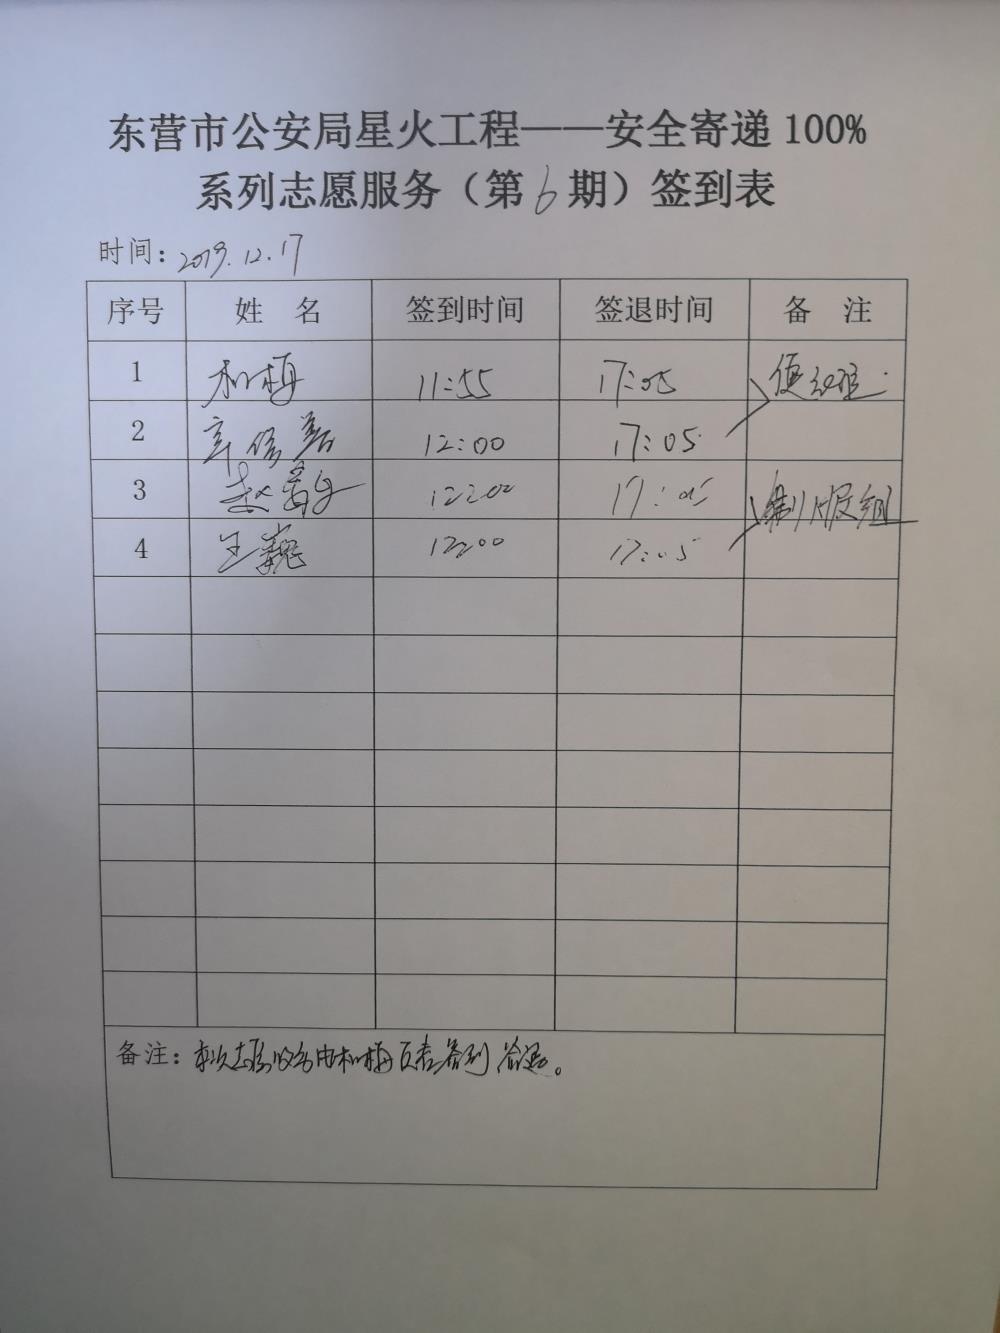 东营市公安局星火工程——安全寄递100%
系列志愿服务（第6期）签到表
时间：2019.12.17
序号 姓 名 签到时间 签退时间 备 注
1 11:55 17:05
2 12:00 17:05
3 赵 12:00 17:05 制服组
4 王巍 12:00 17:05
备注：本次志愿服务由 负责签到签退。